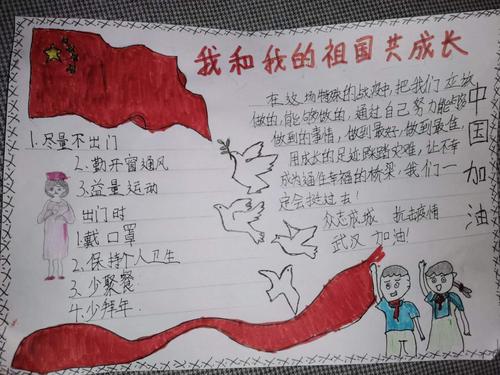 我和我的祖国共成长
1.尽量不出门
2.勤开窗通风
3.益量运动
出门时
1.戴口罩
2.保持个人卫生
3.少聚餐
4.少拜年
在这场特殊的战疫中,把我们在该
做的,能够做的,通过自己努力能够
做到的事情,做到最好,做到最佳,
用成长的足迹跌踏灾难,让不幸
成为通往幸福的桥梁,我们一
定会挺过去!
众志成城 抗击疫情
武汉 加油!
中国加油